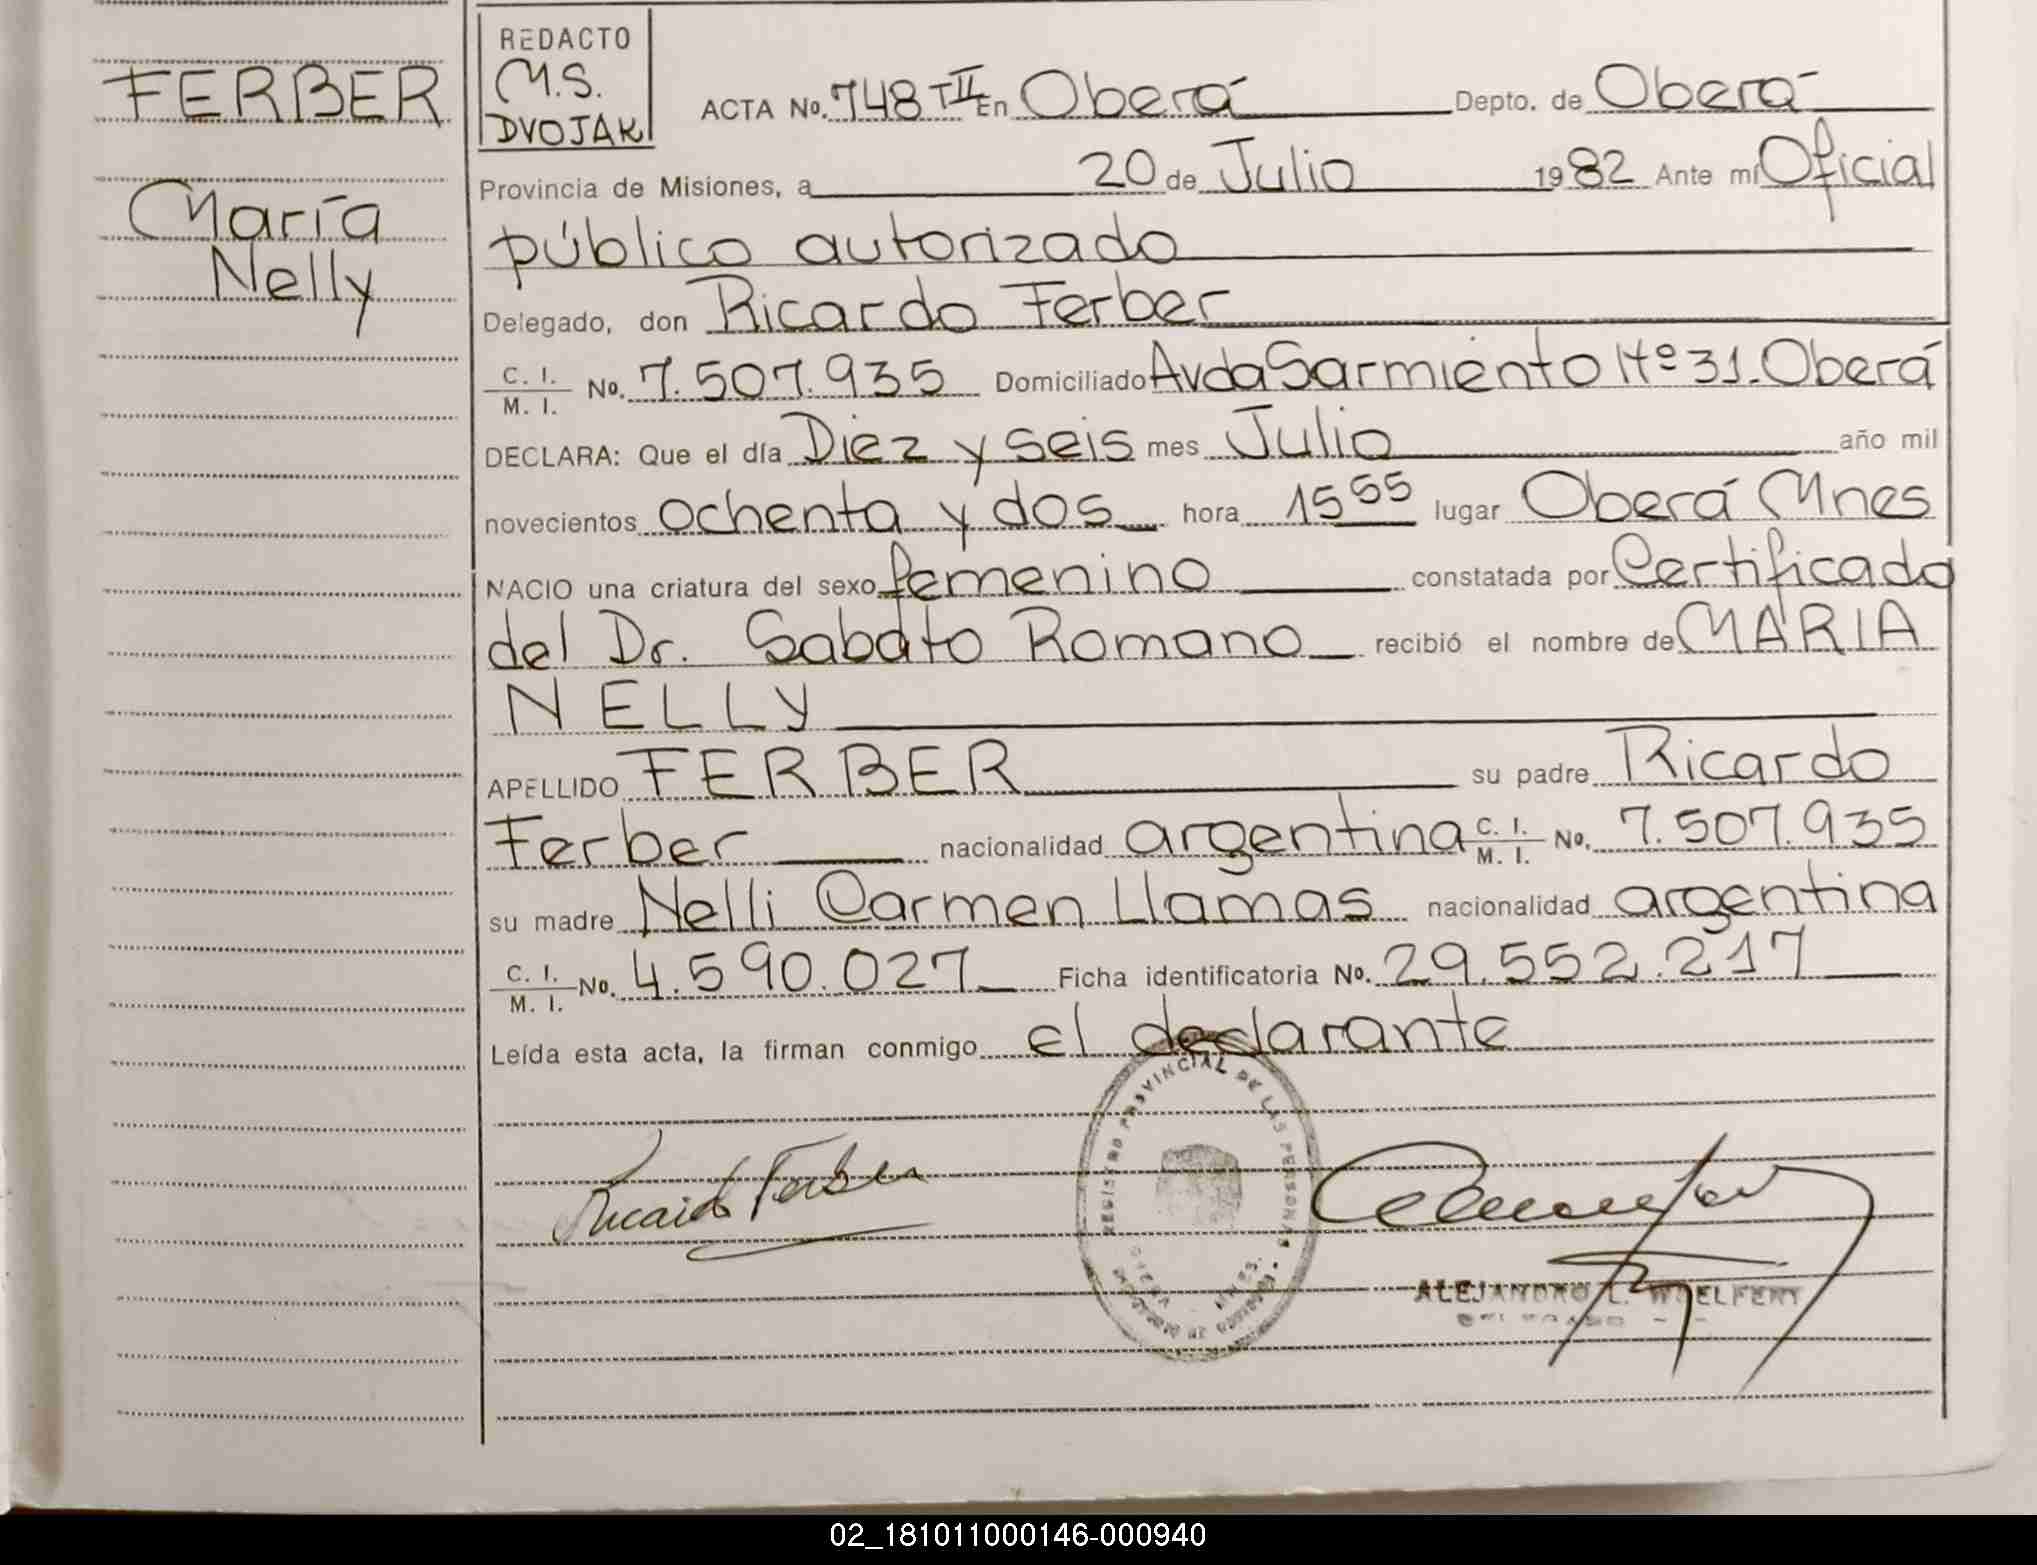 FERBER
María
Nelly
REDACTO
M.S.
DVOJAK
ACTA No. 748 TII En Oberá Depto. de Oberá
Provincia de Misiones, a 20 de Julio 1982 Ante mí Oficial
público autorizado
Delegado, don Ricardo Ferber
C. I. / M. I. No. 7.507.935 Domiciliado Avda Sarmiento Nº 31. Oberá
DECLARA: Que el día Diez y seis mes Julio año mil
novecientos ochenta y dos hora 15 55 lugar Oberá Mnes
NACIO una criatura del sexo femenino constatada por Certificado
del Dr. Sabato Romano recibió el nombre de MARIA
NELLY
APELLIDO FERBER su padre Ricardo
Ferber nacionalidad argentina C. I. / M. I. No. 7.507.935
su madre Nelli Carmen Llamas nacionalidad argentina
C. I. / M. I. No. 4.590.027 Ficha identificatoria No. 29.552.217
Leída esta acta, la firman conmigo el declarante
REGISTRO PROVINCIAL DE LAS PERSONAS
Ricardo Ferber
ALEJANDRO L. WOELFERT
02_181011000146-000940